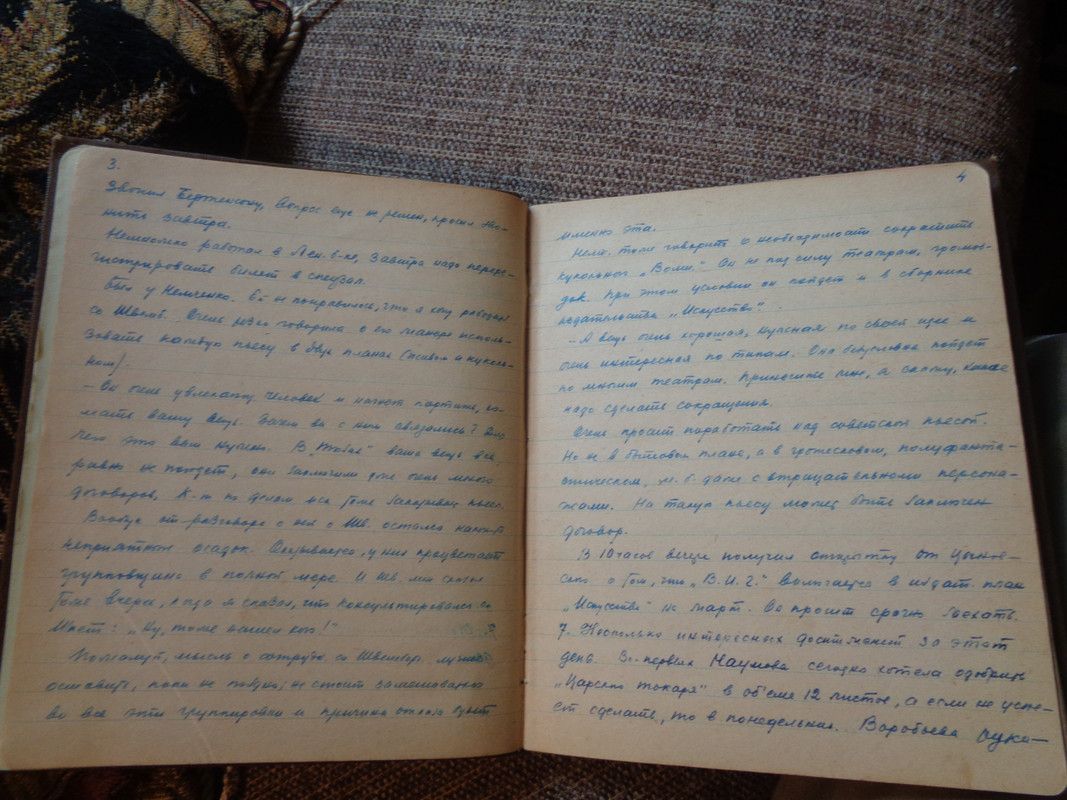 3.
Звонил Бертенсону, вопрос еще не решен, просил зво-
нить завтра.
Немножко работал в Лен. б-ке, завтра надо перере-
гистрировать билет в спецзал.
Был у Немченко. Ей не понравилось, что я хочу работать
со Швемб. Очень резко говорила о его манере исполь-
зовать каждую пьесу в двух планах (живом и куколь-
ном).
– Он очень увлекающ. человек и начнет портить, ло-
мать вашу вещь. Зачем вы с ним связались? Для
чего это вам нужно. В ваша вещь все
равно не пойдет, они заключили уже очень много
договоров, К-т по делам иск. тоже пьесы.
Вообще от разговора с ней о Шв. остался какой-то
неприятный осадок. Оказывается, у них процветает
групповщина в полной мере. И Шв. мне сказал
тоже вчера, когда я сказал, что консультировался со
: „Ну, тоже нашел кого!"
Пожалуй, мысль о сотрудн. со Швембер. лучше
оставить, пока не поздно; не стоит замешиваться
во все эти группировки и причина отказа будет
4
именно эта.
Нем. тоже говорит о необходимости сократить
кукольного „Волш." Он не под силу театрам, громоз-
док. При этом условии он пойдет и в сборнике
издательства „Искусство".
– А вещь очень хорошая, нужная по своей идее и
очень интересная по типам. Она безусловно пойдет
по многим театрам. Приносите мне, я скажу, какие
надо сделать сокращения.
Очень просит поработать над советской пьесой.
Но не в бытовом плане, а в гротесковом, полуфанта-
стическом, м. б. даже с отрицательными персона-
жами. На такую пьесу может быть заключен
договор.
В 10 часов вечера получил открытку от
о том, что „В. И. Г." включается в издат. план
„Искусства" на март. Он просит срочно
7. Несколько интересных достижений за этот
день. Во-первых Наумова сегодня хотела одобрить
„Царского токаря" в объеме 12 листов, а если не успе-
ет сделать, то в понедельник. Воробьева руко-